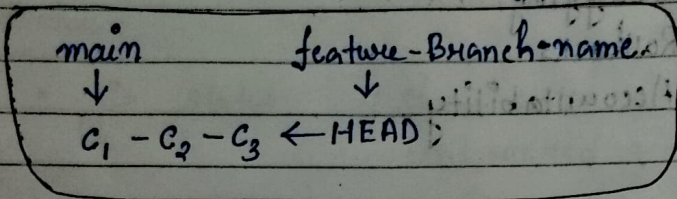 main feature-Branch-name.
↓ ↓
C₁ - C₂ - C₃ ← HEAD :